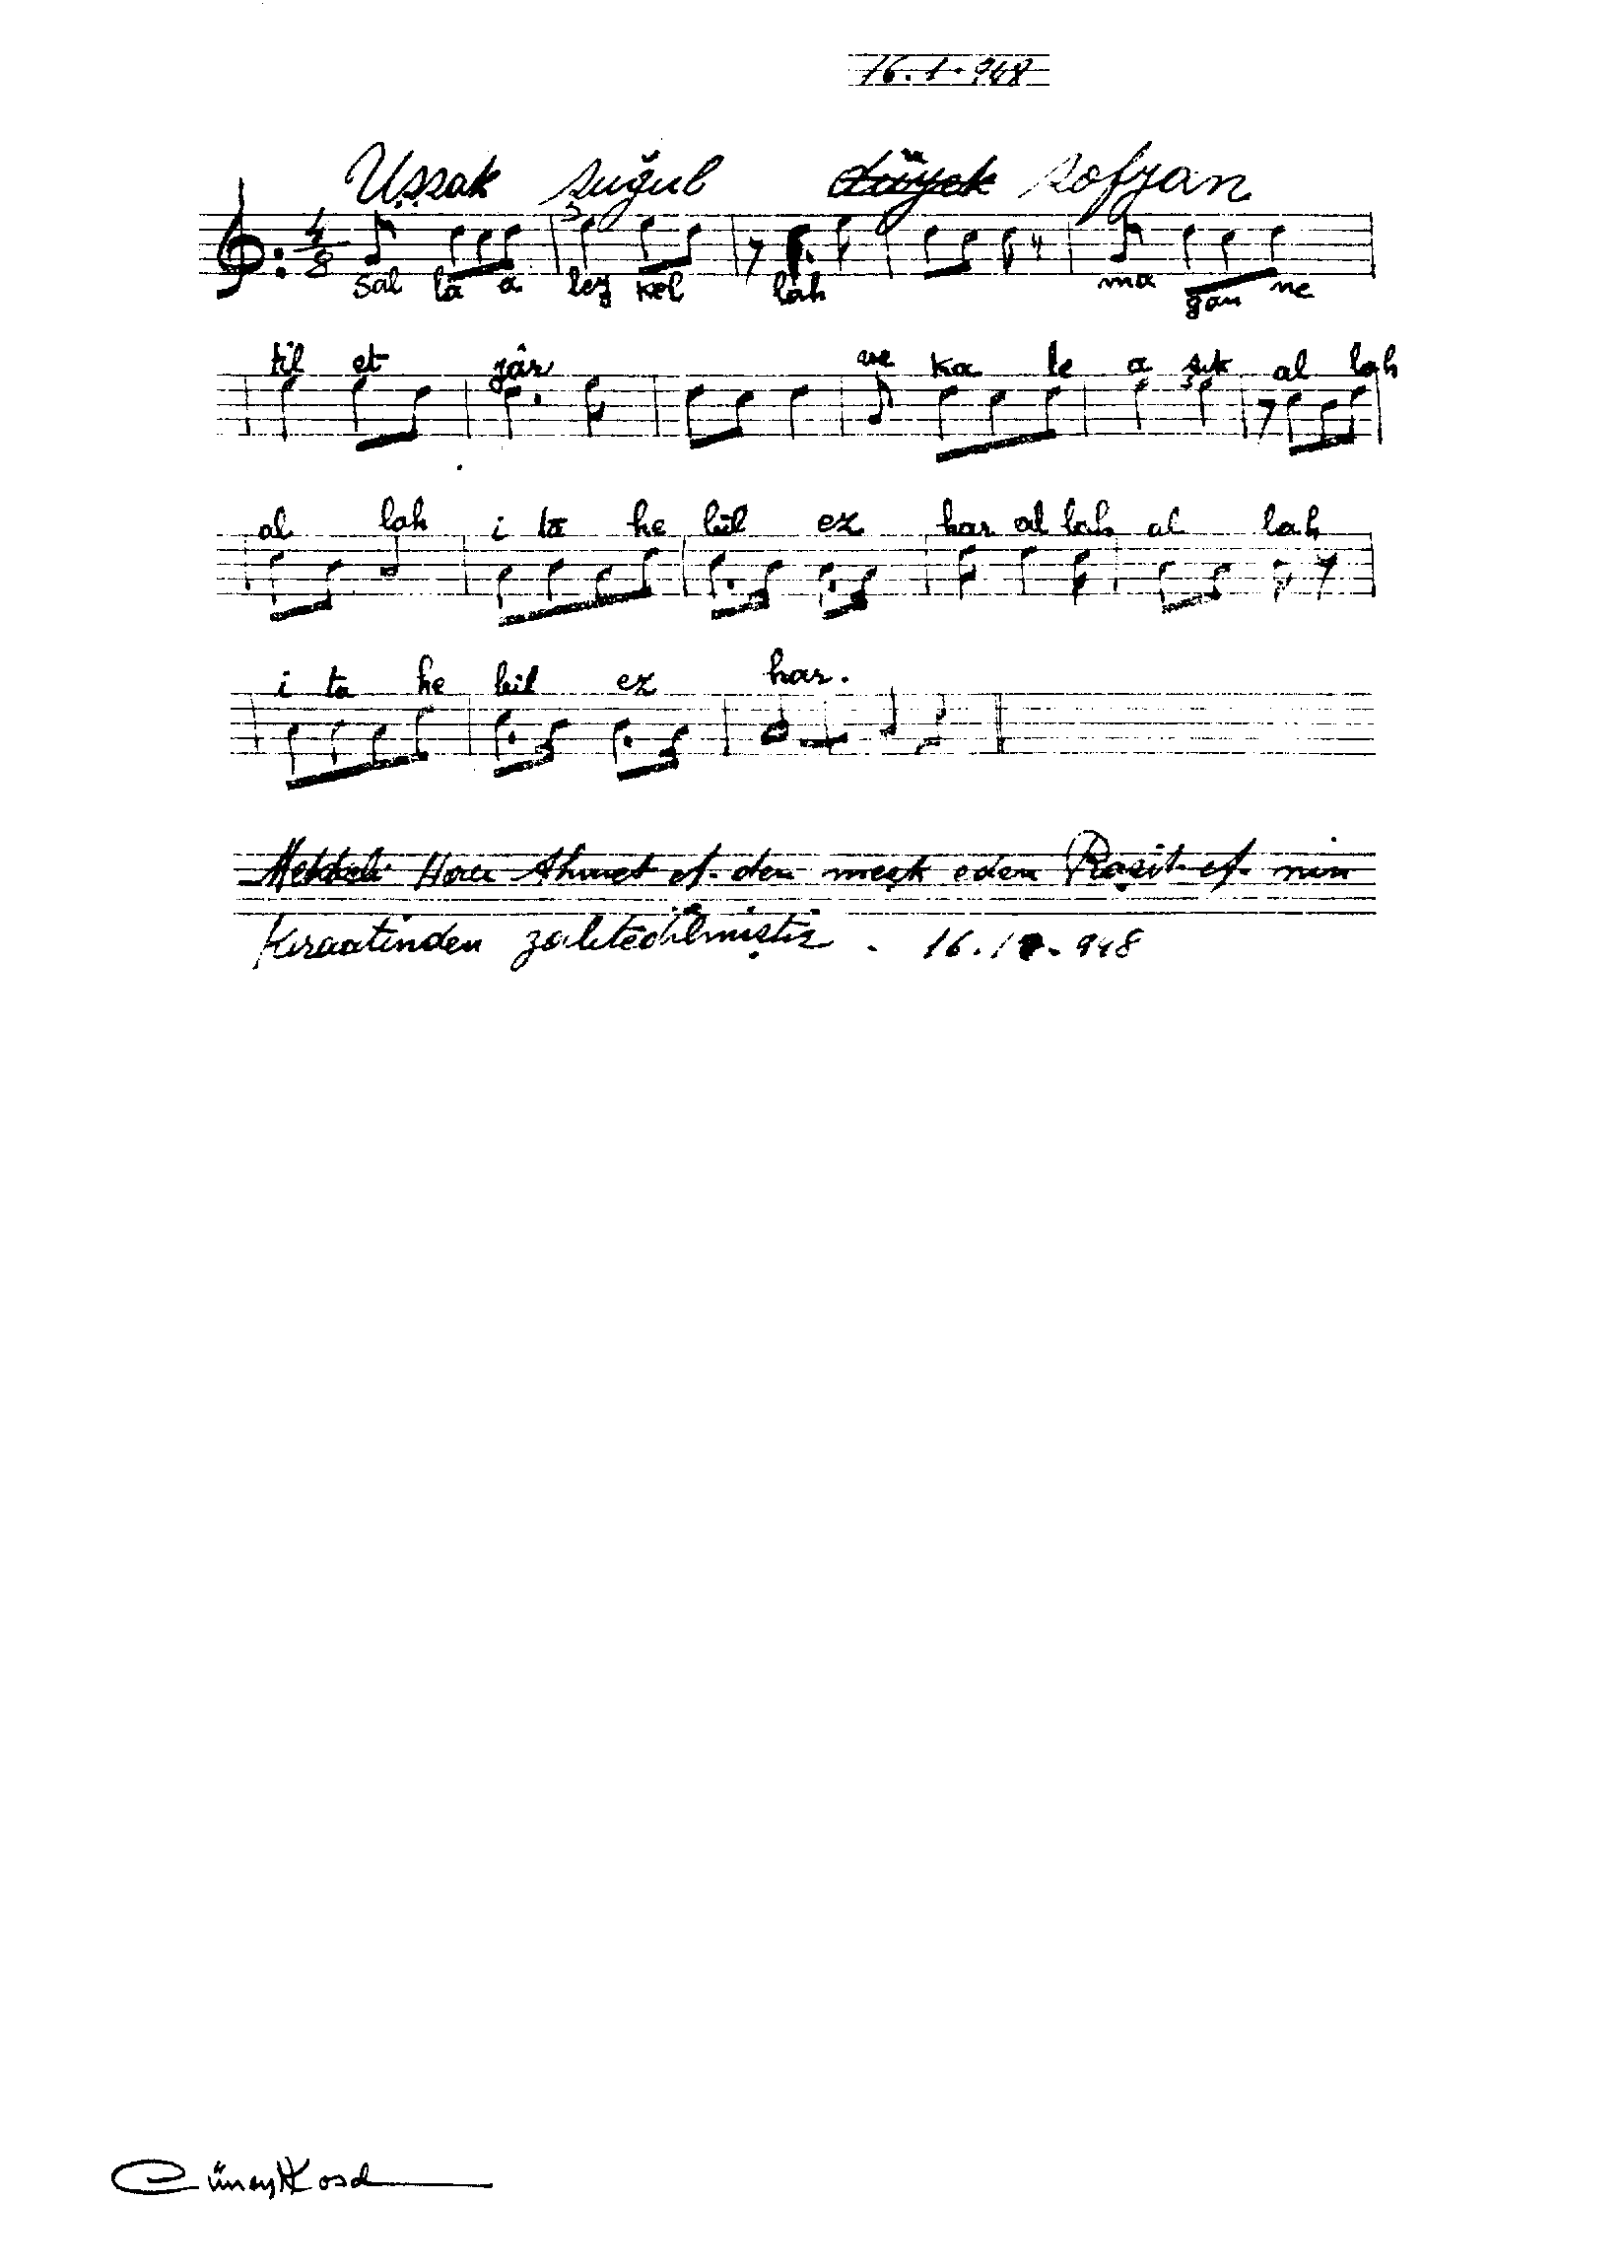 16.1.948
Uşşak şuğul düyek sofyan
4/8
Sal lâ a ley kel lah ma gan ne
til et yâr ve ka le a şık al lah
al lah i ta he lül ez har al lah al lah
i ta he lül ez har.
Mekkeli Hoca Ahmet ef. den meşk eden Raşit ef. nin
Kıraatinden zabtedilmiştir. 16.1.948
Cüneyt Kosal